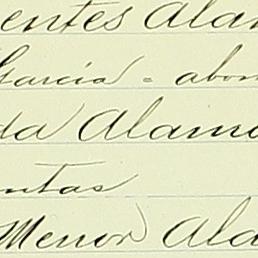 entes Alam
Garcia = abon
da Alame
entas
Menor Ala